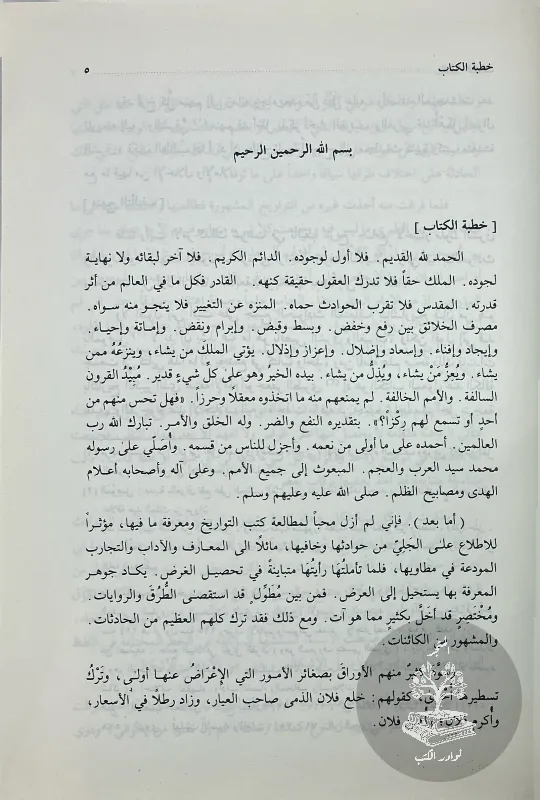 خطبة الكتاب ٥
بسم الله الرحمين الرحيم
[ خطبة الكتاب ]
الحمد لله القديم. فلا أول لوجوده. الدائم الكريم. فلا آخر لبقائه ولا نهاية
لجوده. الملك حقاً فلا تدرك العقول حقيقة كنهه. القادر فكل ما في العالم من أثر
قدرته. المقدس فلا تقرب الحوادث حماه. المنزه عن التغيير فلا ينجو منه سواه.
مصرف الخلائق بين رفع وخفض. وبسط وقبض. وإبرام ونقض. وإماتة وإحياء.
وإيجاد وإفناء. وإسعاد وإضلال. وإعزاز وإذلال. يؤتي الملكَ من يشاء، وينزعُهُ ممن
يشاء. ويُعِزُّ مَنْ يشاء، ويُذِلُّ من يشاء. بيده الخيرُ وهو علىٰ كلِّ شيءٍ قدير. مُبِيْدُ القرون
السالفة. والأمم الخالفة. لم يمنعهم منه ما اتخذوه معقلاً وحرزاً. «فهل تحس منهم من
أحدٍ أو تسمع لهم رِكْزاً؟». بتقديره النفع والضر. وله الخلق والأمر. تبارك الله رب
العالمين. أحمده على ما أولى من نعمه. وأجزل للناس من قسمه. وأُصَلّي علىٰ رسوله
محمد سيد العرب والعجم. المبعوث إلى جميع الأمم. وعلى آله وأصحابه أعلام
الهدى ومصابيح الظلم. صلى الله عليه وعليهم وسلم.
( أما بعد ). فإني لم أزل محباً لمطالعة كتب التواريخ ومعرفة ما فيها، مؤثراً
للاطلاع على الجَلِيِّ من حوادثها وخافيها، مائلًا الى المعارف والآداب والتجارب
المودعة في مطاويها، فلما تأملتُها رأيتُها متباينةً في تحصيل الغرض. يكاد جوهر
المعرفة بها يستحيل إلى العرض. فمن بين مُطَوِّلٍ قد استقصىٰ الطُّرُقَ والروايات.
ومُخْتَصِرٍ قد أخَلَّ بكثيرٍ مما هو آت. ومع ذلك فقد ترك كلهم العظيم من الحادثات.
والمشهور من الكائنات.
وسَوَّدَ كثيرٌ منهم الأوراقَ بصغائر الأمور التي الإِعْرَاضُ عنها أولىٰ، وتَرْكُ
تسطيرها أحرىٰ، كقولهم: خلع فلان الذمى صاحب العيار، وزاد رطلًا في الأسعار،
وأُكرم فلان؛ وأهين فلان.
نوادر الكتب